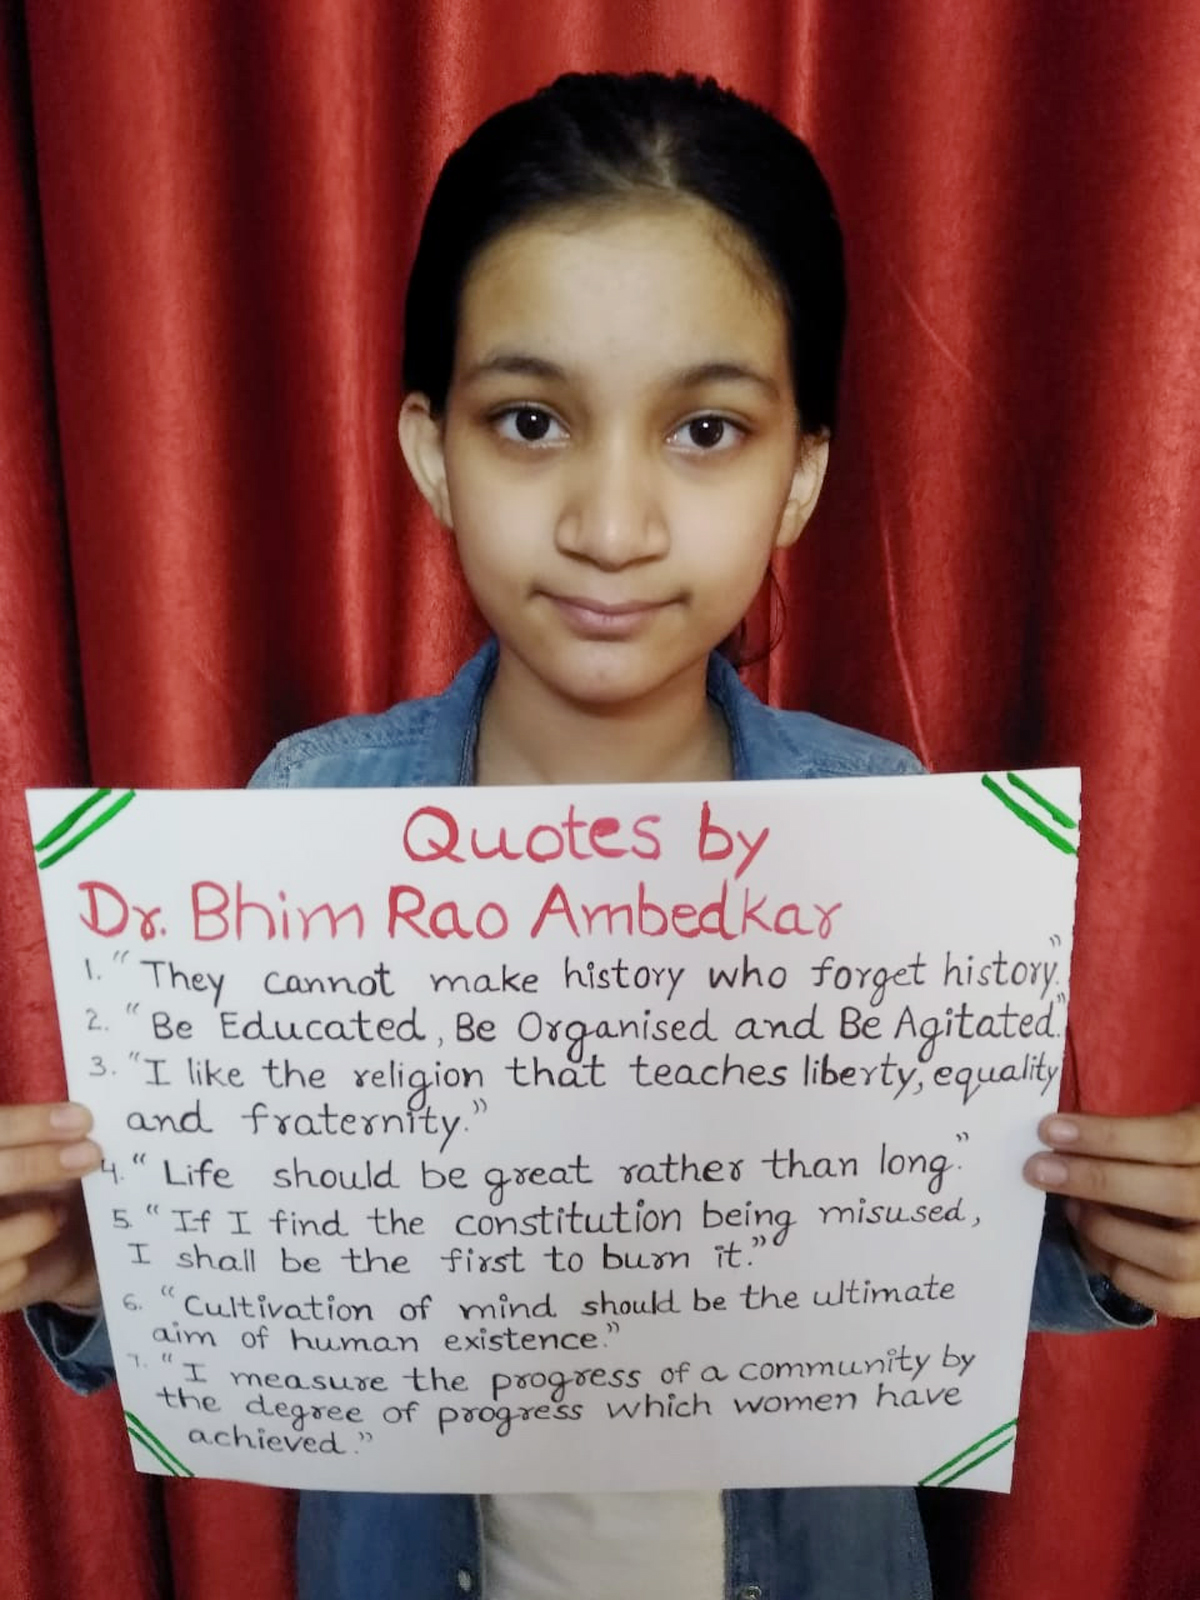 Quotes by
Dr. Bhim Rao Ambedkar
1. "They cannot make history who forget history."
2. "Be Educated, Be Organised and Be Agitated."
3. "I like the religion that teaches liberty, equality
and fraternity."
4. "Life should be great rather than long."
5. "If I find the constitution being misused,
I shall be the first to burn it."
6. "Cultivation of mind should be the ultimate
aim of human existence."
7. "I measure the progress of a community by
the degree of progress which women have
achieved."